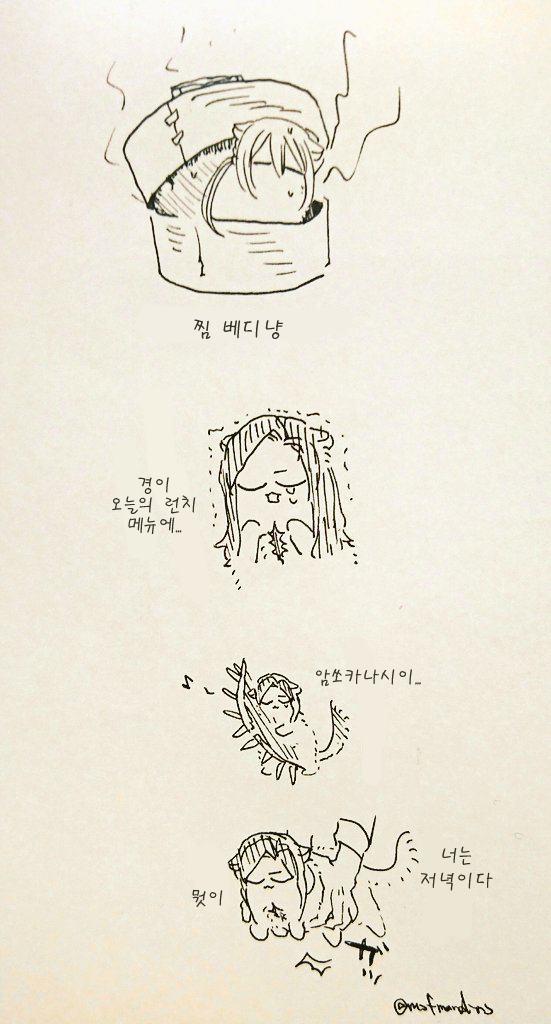 찜 베디냥
경이
오늘의 런치
메뉴에...
암쏘카나시이...
너는
저녁이다
뭣이